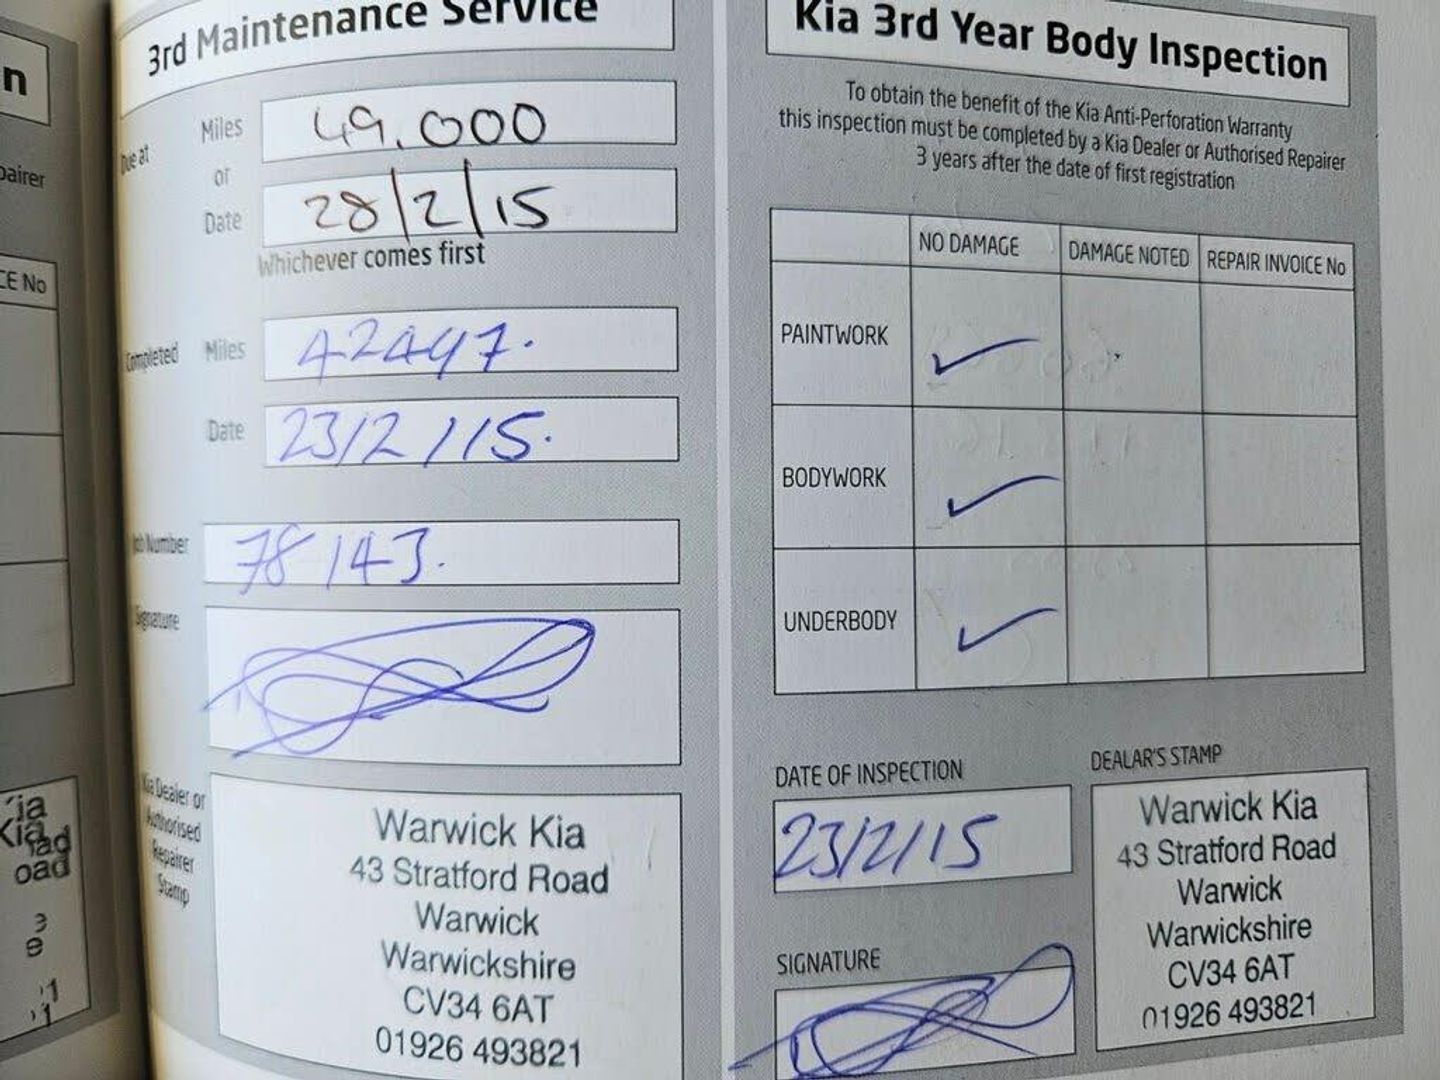 n
pairer
CE No
3rd Maintenance Service
Due at
Miles
49.000
or
Date
28/2/15
Whichever comes first
Completed
Miles
42497.
Date
23/2/15.
Job Number
78143.
Signature
Kia Dealer or
Authorised
Repairer
Stamp
Warwick Kia
43 Stratford Road
Warwick
Warwickshire
CV34 6AT
01926 493821
Kia 3rd Year Body Inspection
To obtain the benefit of the Kia Anti-Perforation Warranty
this inspection must be completed by a Kia Dealer or Authorised Repairer
3 years after the date of first registration
NO DAMAGE DAMAGE NOTED REPAIR INVOICE No
PAINTWORK
BODYWORK
UNDERBODY
DATE OF INSPECTION
23/2/15
SIGNATURE
DEALAR'S STAMP
Warwick Kia
43 Stratford Road
Warwick
Warwickshire
CV34 6AT
01926 493821